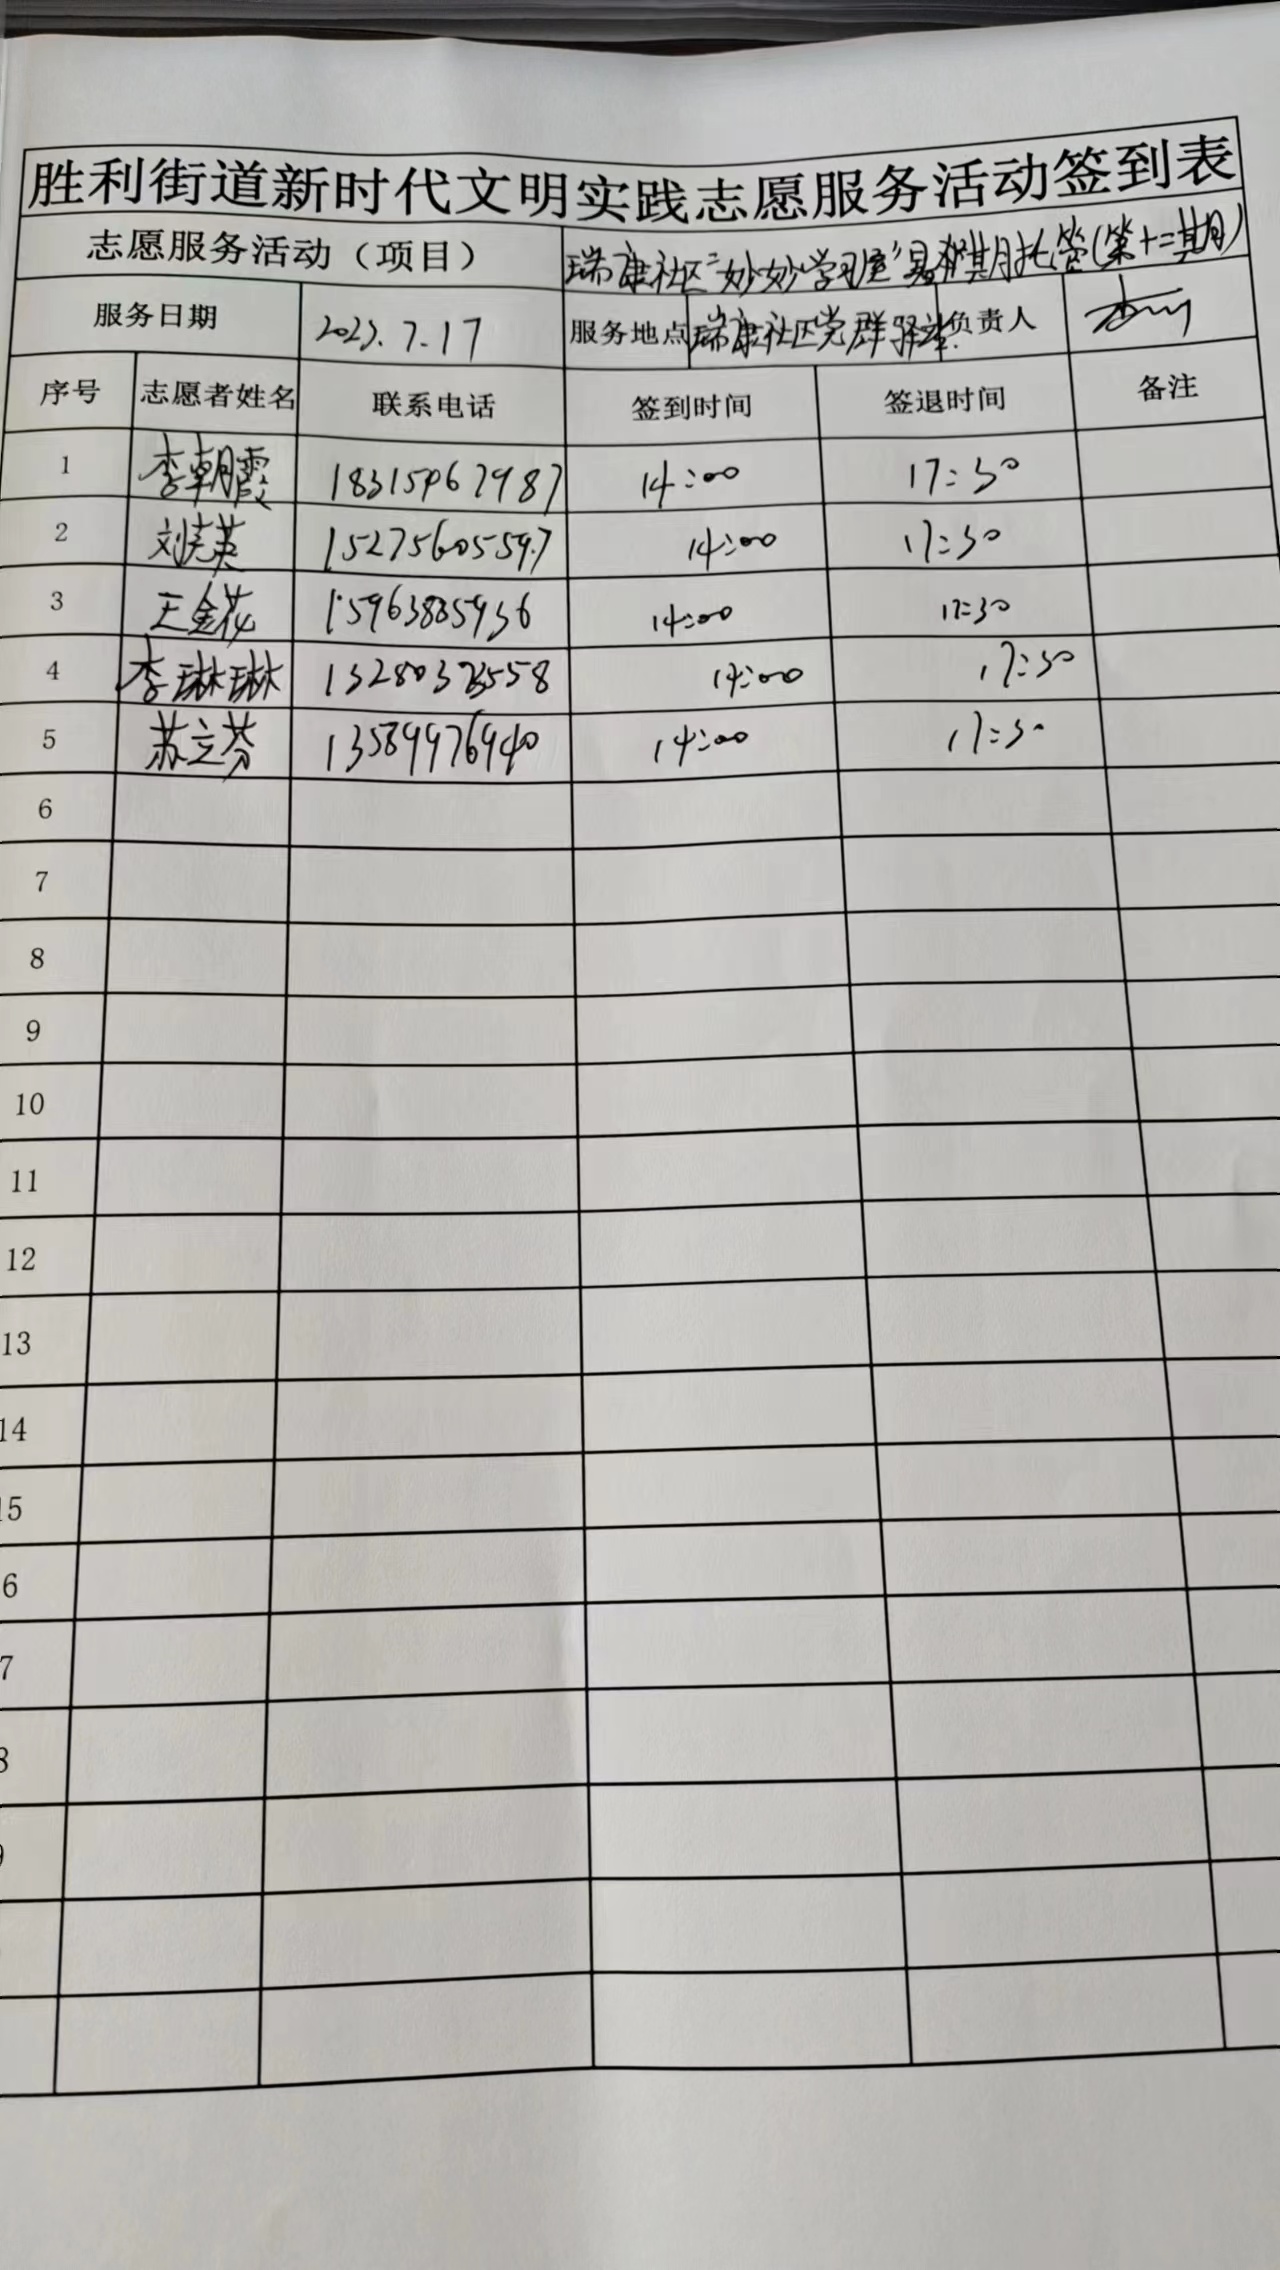 胜利街道新时代文明实践志愿服务活动签到表
志愿服务活动（项目） 瑞康社区“妙妙学习屋”暑假期托管(第十二期)
服务日期 2023.7.17 服务地点 瑞康社区党群驿站 负责人
序号 志愿者姓名 联系电话 签到时间 签退时间 备注
1 李朝霞 18315967987 14:00 17:30
2 刘芳英 15275605597 14:00 17:30
3 王金花 15963885936 14:00 17:30
4 李琳琳 14:00 17:30
5 苏立芬 13589976940 14:00 17:30
6
7
8
9
10
11
12
13
14
15
6
7
8
9